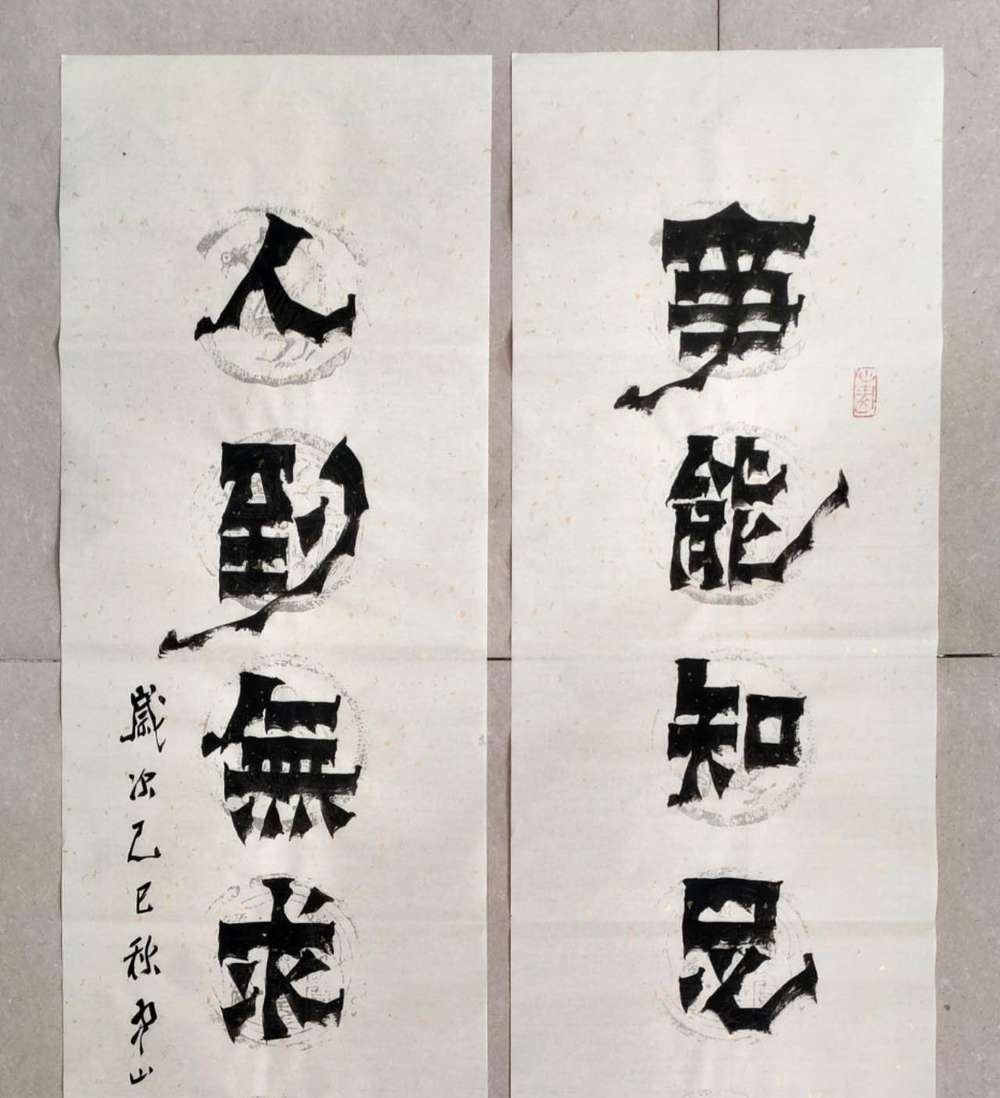 事能知足
人到無求
歲次乙巳秋山